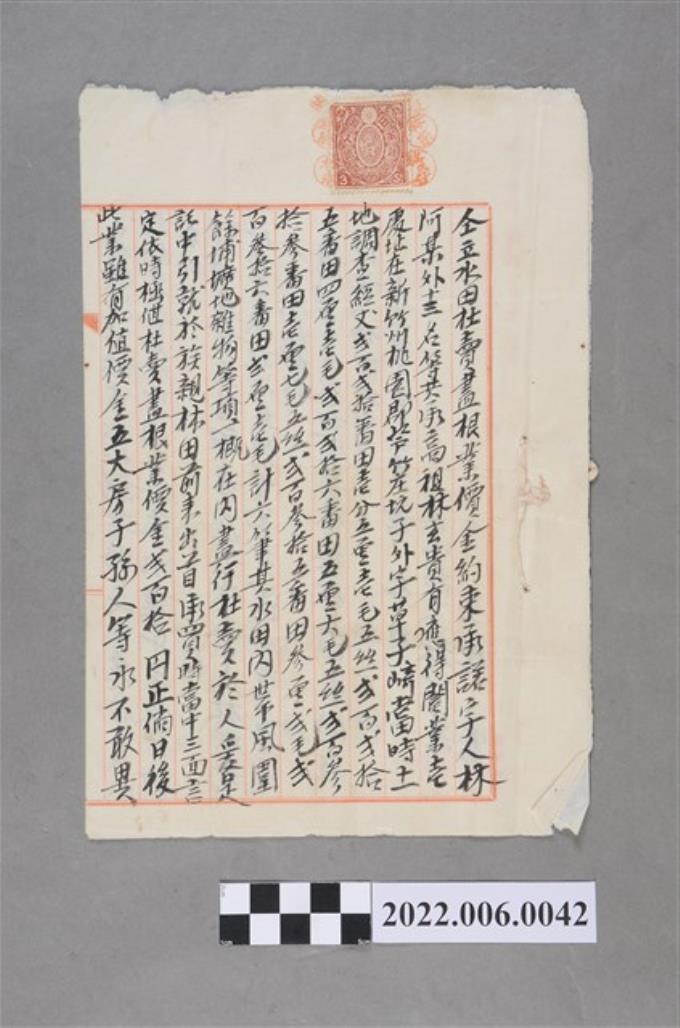 仝立水田杜賣盡根業價金約束承諾字人林
阿某外十三名等共承高祖林玄貴有應得鬮業壹
處址在新竹州桃園郡芦竹庄坑子外字草子崎當時土
地調查經丈弍百弍拾番田壹分五厘壹毛五絲弍百弍拾
五番田四厘壹毛弍百弍拾六番田五厘六毛五絲弍百參
拾參番田壹厘七毛五絲弍百參拾五番田參厘弍毛弍
百參拾六番田弍厘壹毛計六筆其水田內帶風圍
餘埔壙地雜物等項一概在內盡行杜賣於人爰是
託中引就於族親林田前來出首承買時當中三面言
定依時極值杜賣盡根業價金弍百拾円正倘日後
此業雖有加值價金五大房子孫人等永不敢異
2022.006.0042